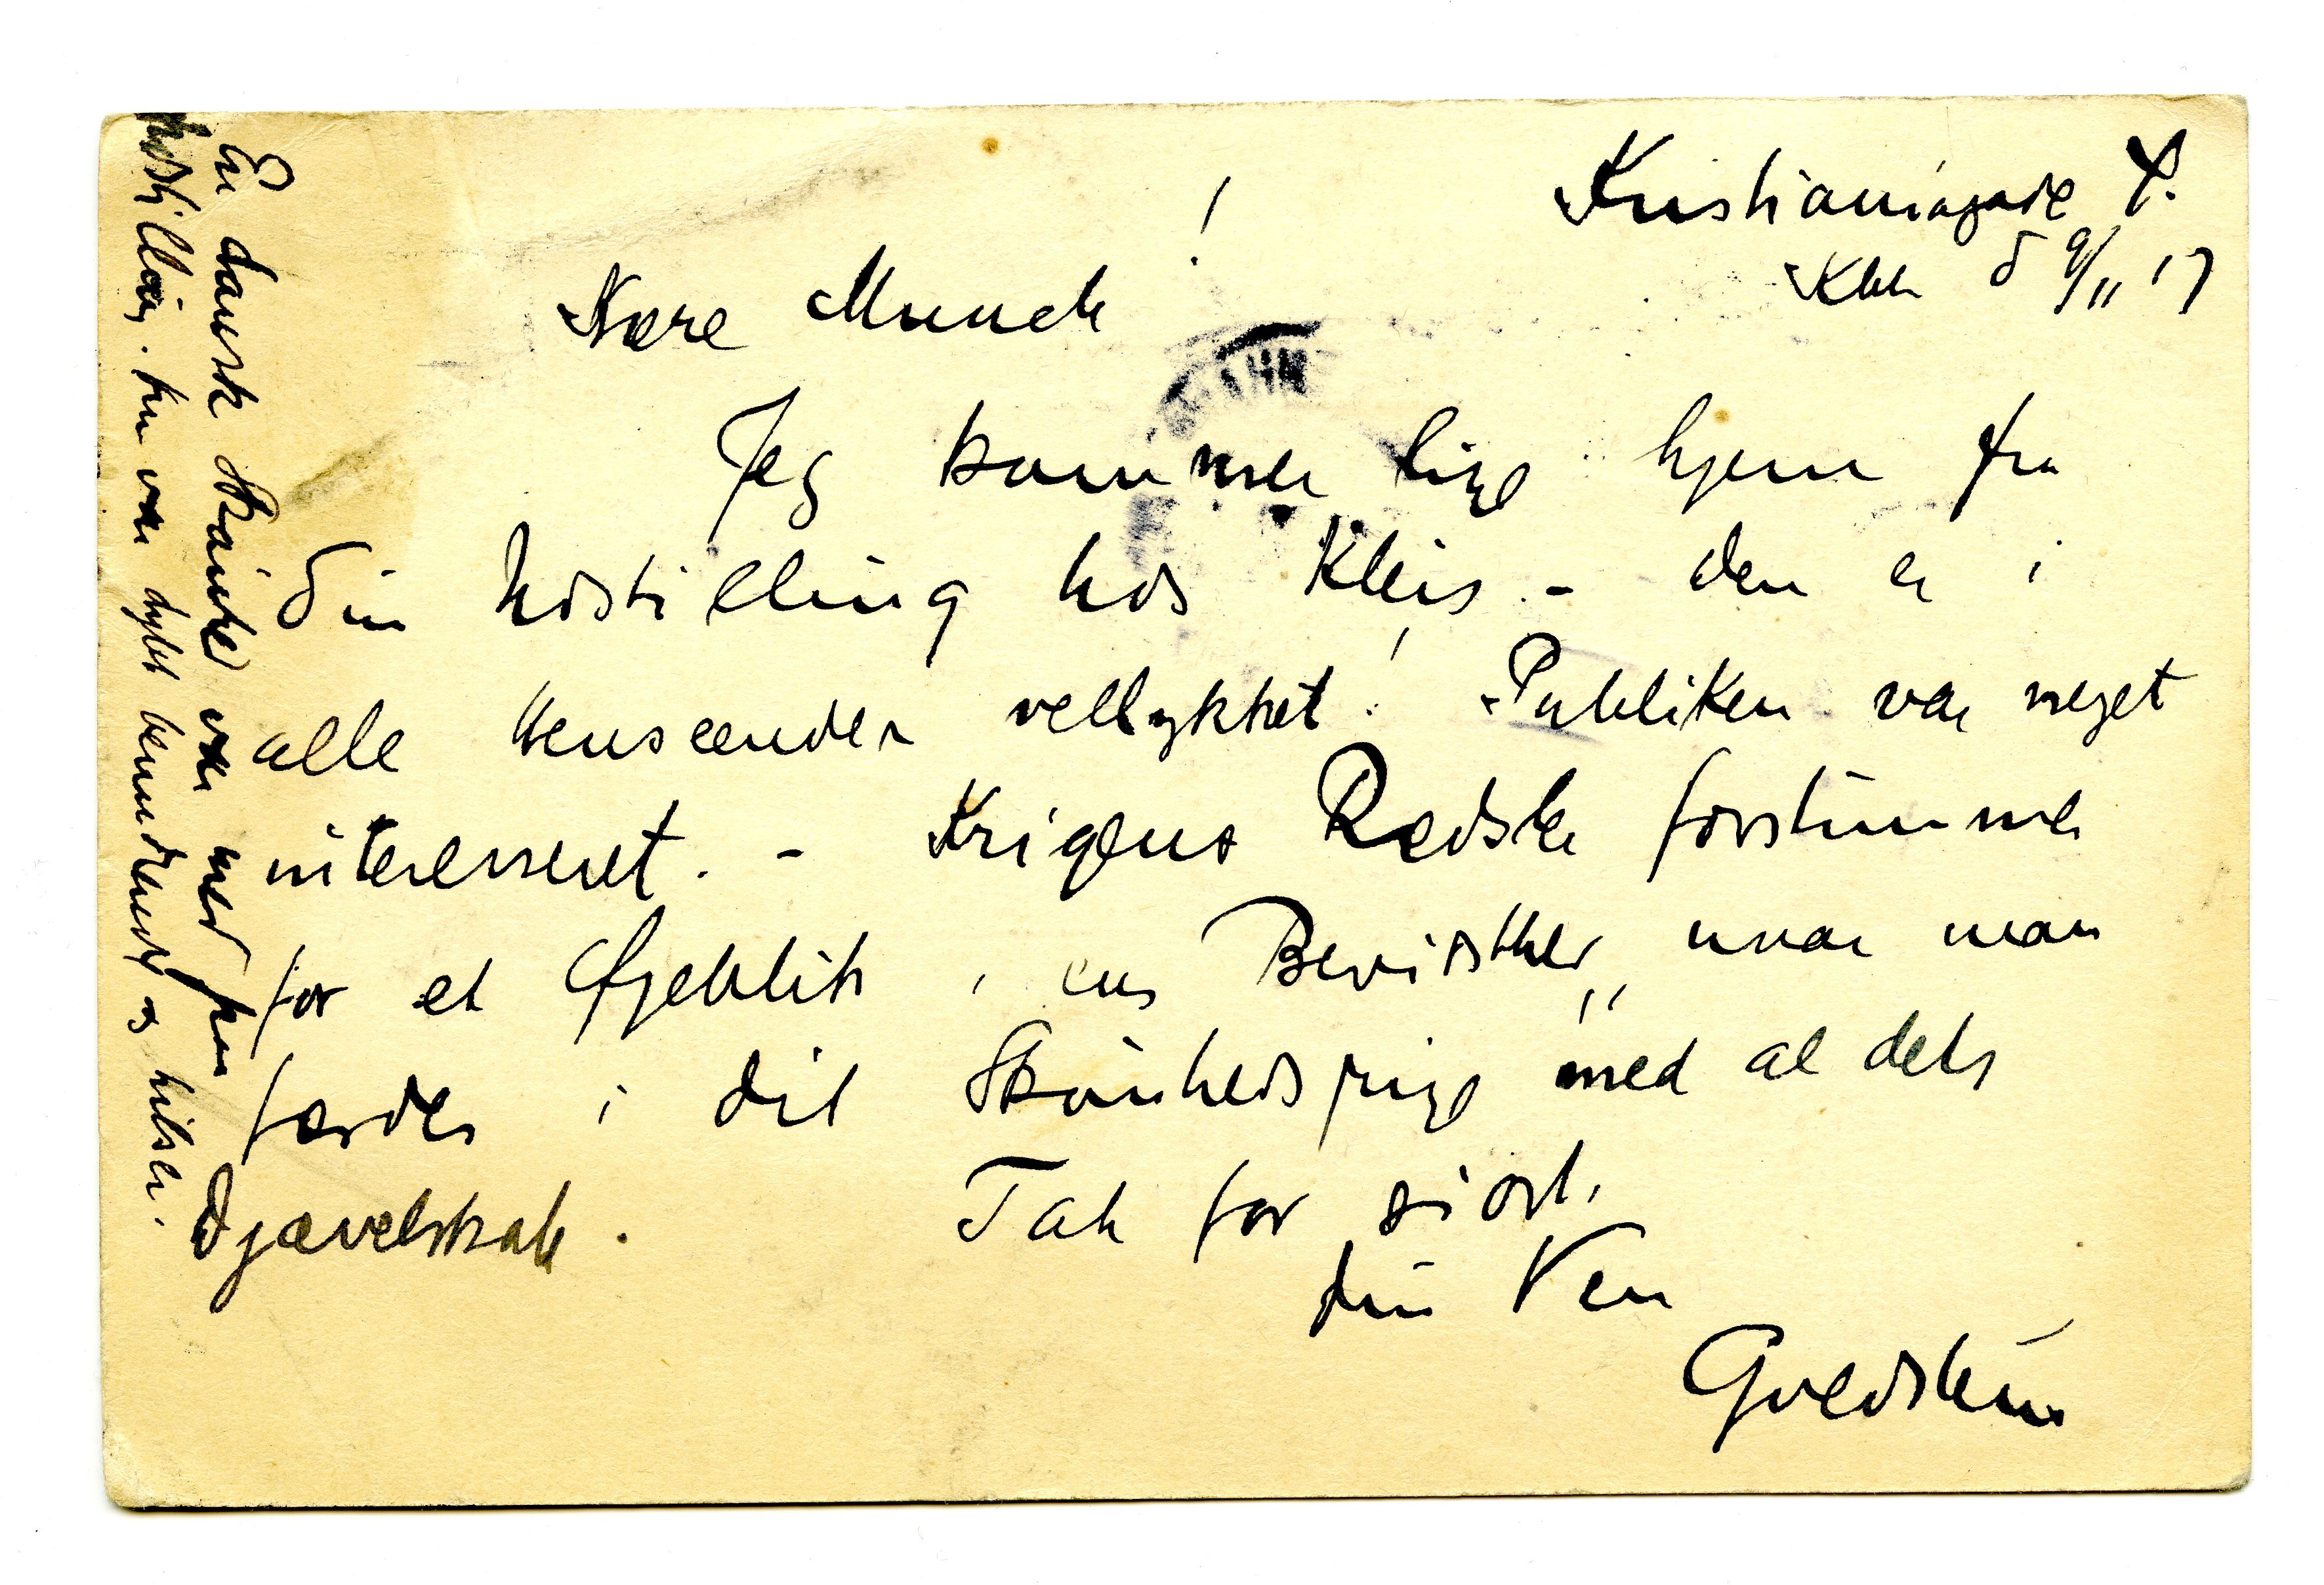 Kristianiagade 8.
Kbh d 9/11 17
Kære Munch!
Jeg kommer lige hjem fra
Din Udstilling hos Kleis – den er i
alle Henseender vellykket! Publiken var meget
interesseret. – Krigens Rædsler forstummer
for et Øjeblik i ens Bevidsthed, naar man
færdes i dit Skønhedsrige "med al dets
Djævelskab. Tak for sidst.
din Ven
Goldstein
En dansk Skønhed var med paa
Udstilling. hun var dybt beundrende og hilser.